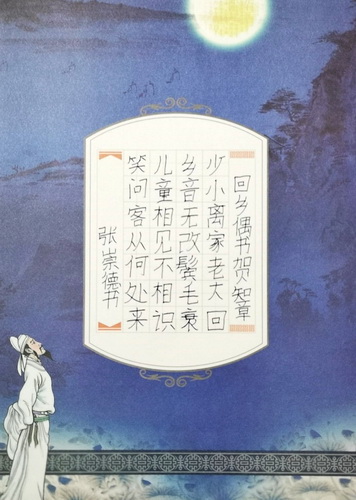 回乡偶书贺知章
少小离家老大回
乡音无改鬓毛衰
儿童相见不相识
笑问客从何处来
张崇德书